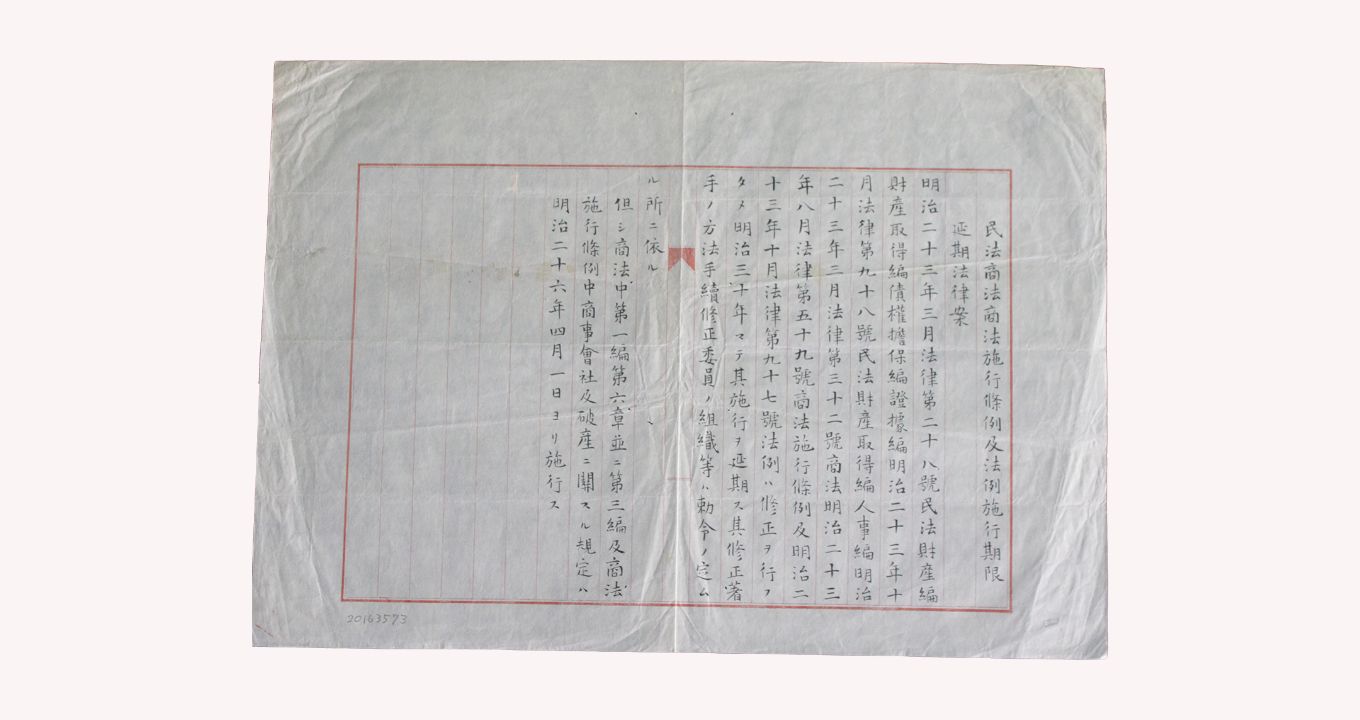 民法商法商法施行條例及法例施行期限
延期法律案
明治二十三年三月法律第二十八號民法財產編
財產取得編債權擔保編證據編明治二十三年十
月法律第九十八號民法財產取得編人事編明治
二十三年三月法律第三十二號商法明治二十三
年八月法律第五十九號商法施行條例及明治二
十三年十月法律第九十七號法例ハ修正ヲ行フ
タメ明治三十年マテ其施行ヲ延期ス其修正著
手ノ方法手續修正委員ノ組織等ハ勅令ノ定ム
ル所ニ依ル
但シ商法中第一編第六章並ニ第三編及商法
施行條例中商事會社及破產ニ關スル規定ハ
明治二十六年四月一日ヨリ施行ス
20163573